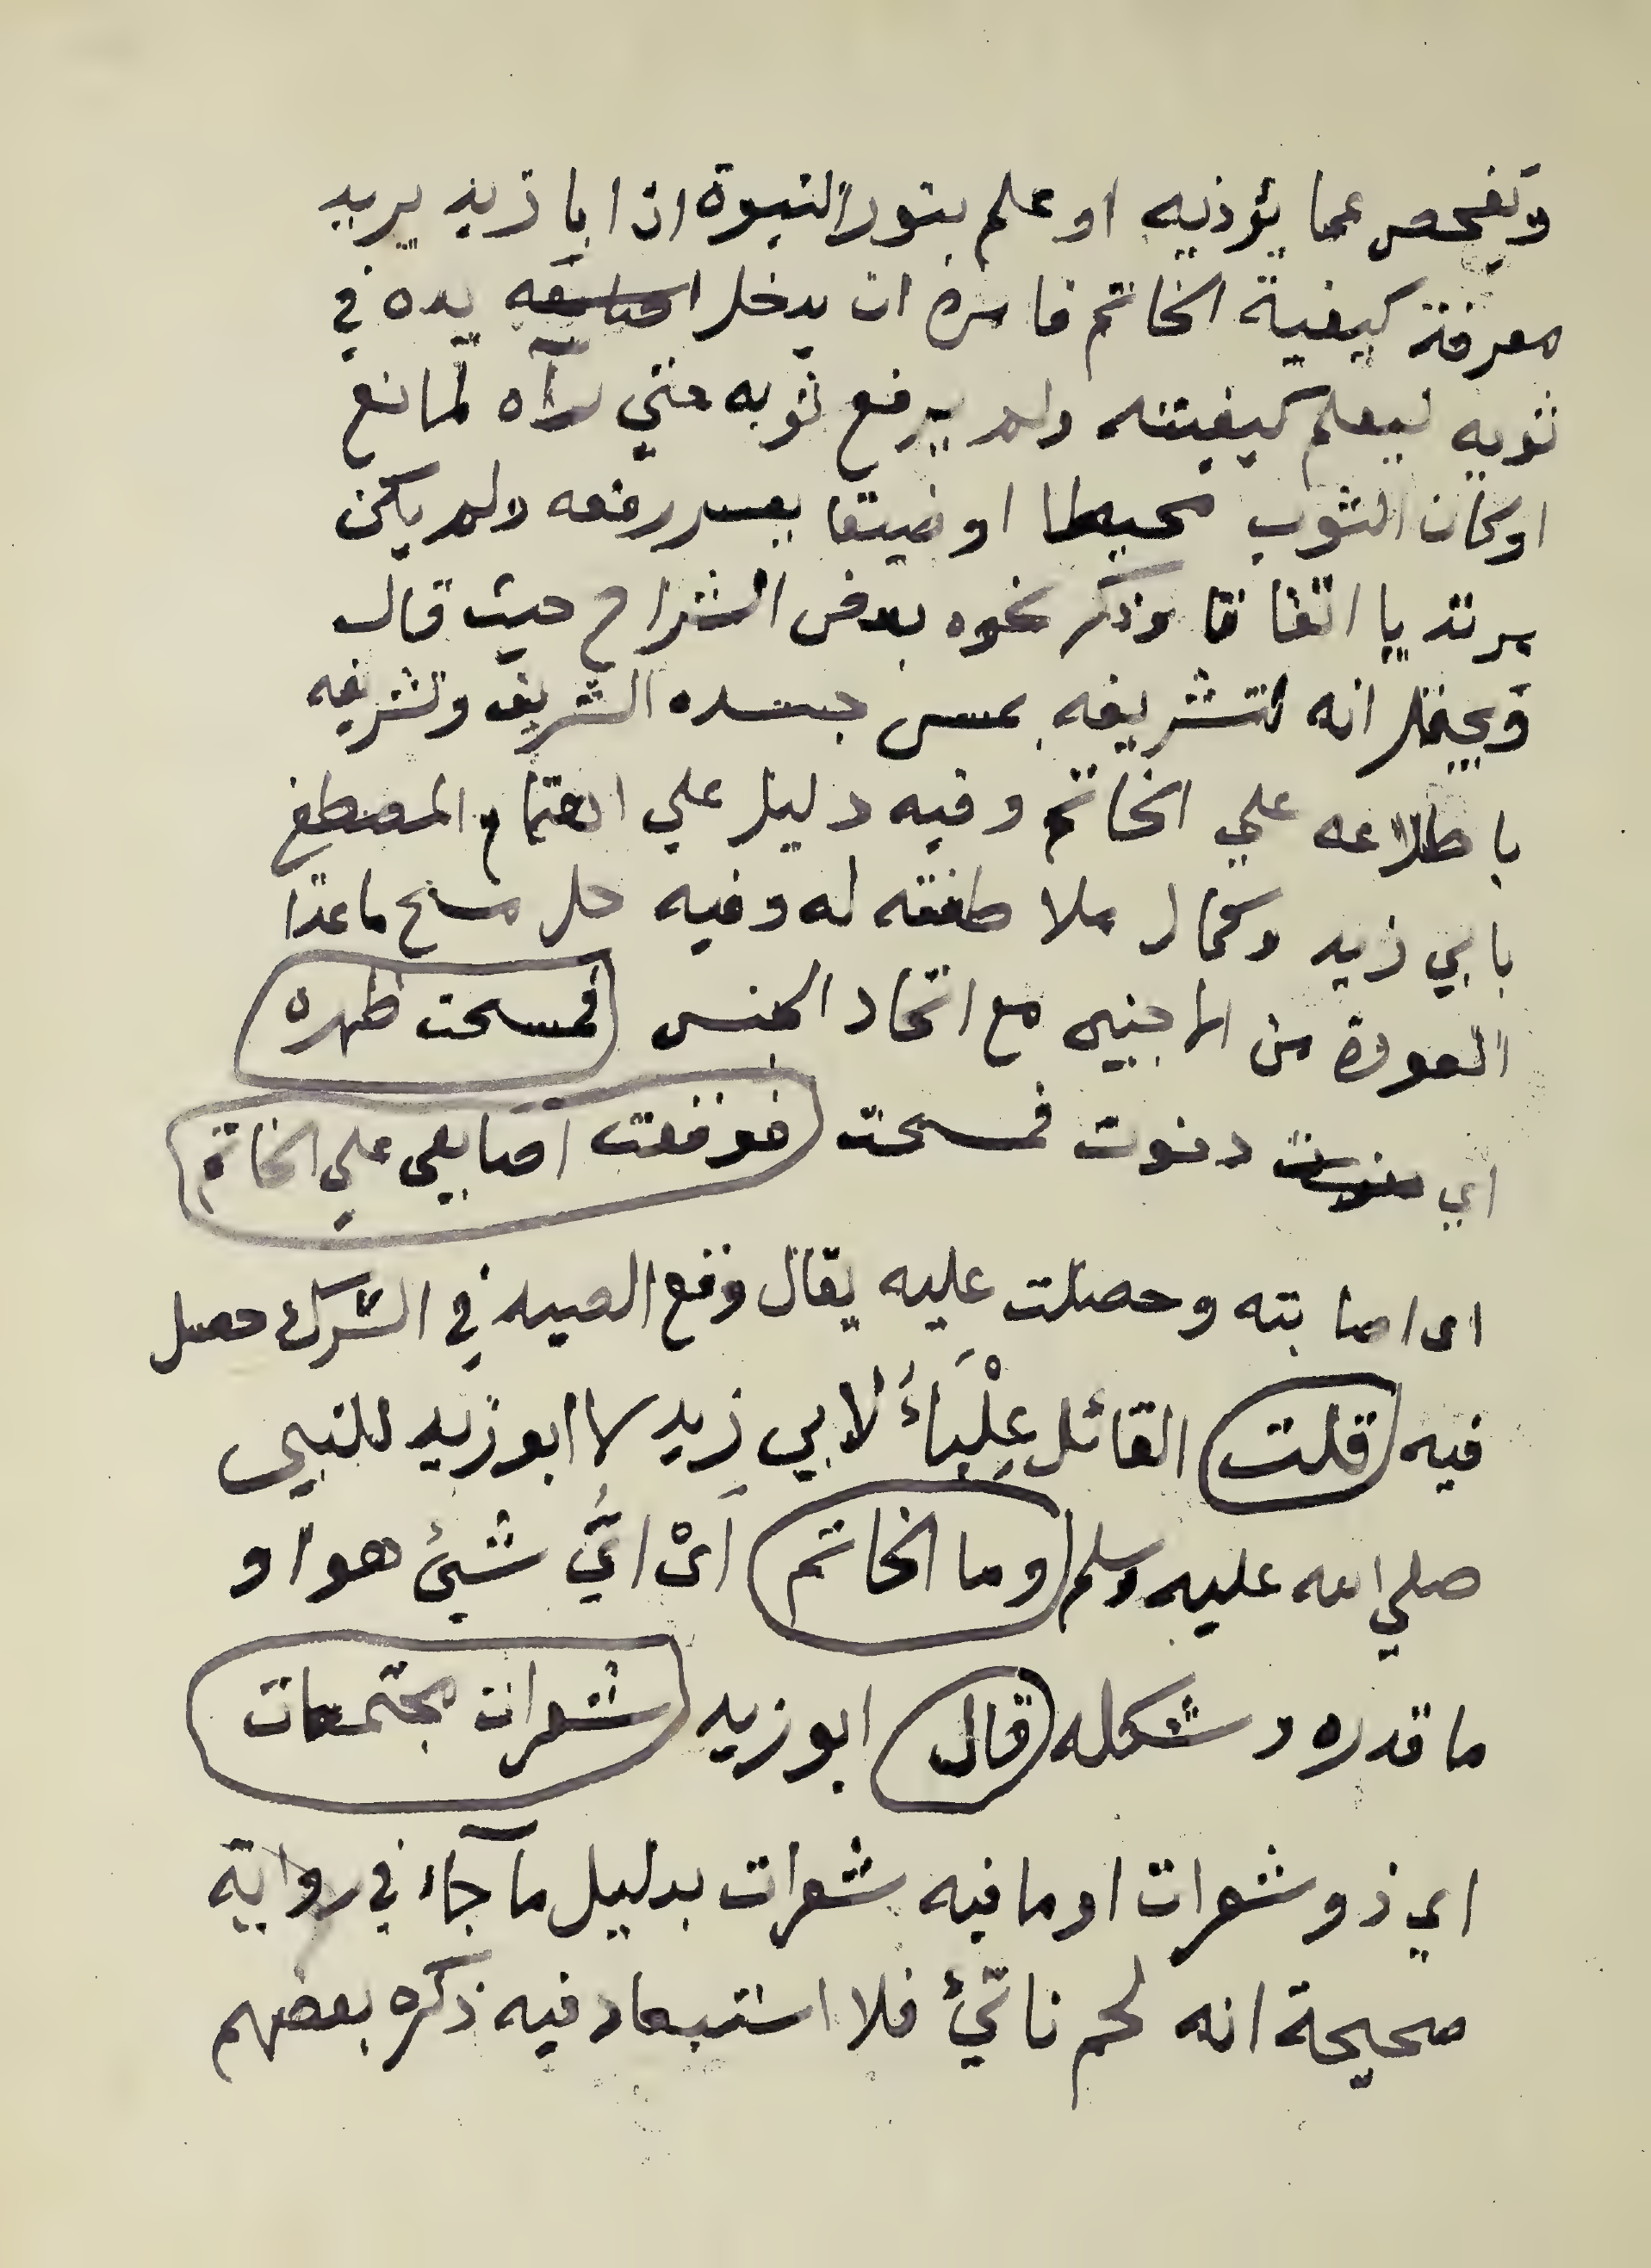 وتفحص عما يؤذيه او علم بنور النبوة ان ابا زيد يريد
معرفة كيفية الخاتم فامره ان يدخل يده في
ثوبه ليعلم كيفيته ولم يرفع ثوبه حتي رآه لمانع
او كان الثوب مخيطا او ضيقا يعسر رفعه ولم يكن
مرتديا اتفاقا وذكر نحوه بعض الشراح حيث قال
ويحتمل انه لتشريفه بمس جسده الشريف وتشريفه
باطلاعه علي الخاتم وفيه دليل علي اهتمام المصطفى
بابي زيد وكمال ملاطفته له وفيه حل مسح ماعدا
العورة من الاجنبي مع اتحاد الجنس فمسحت ظهره
اي دنوت فمسحت فوقعت اصابعي علي الخاتم
اى اصابته وحصلت عليه يقال وقع الصيد في الشرك حصل
فيه قلت القائل عِلْبَاءُ لابي زيد لا ابو زيد للنبي
صلي الله عليه وسلم وما الخاتم اَىْ ايُّ شيئ هو او
ما قدره وشكله قال ابو زيد شعرات مجتمعات
اي ذو شعرات او ما فيه شعرات بدليل ما جآء في رواية
صحيحة انه لحم ناتئ فلا استبعاد فيه ذكره بعضهم